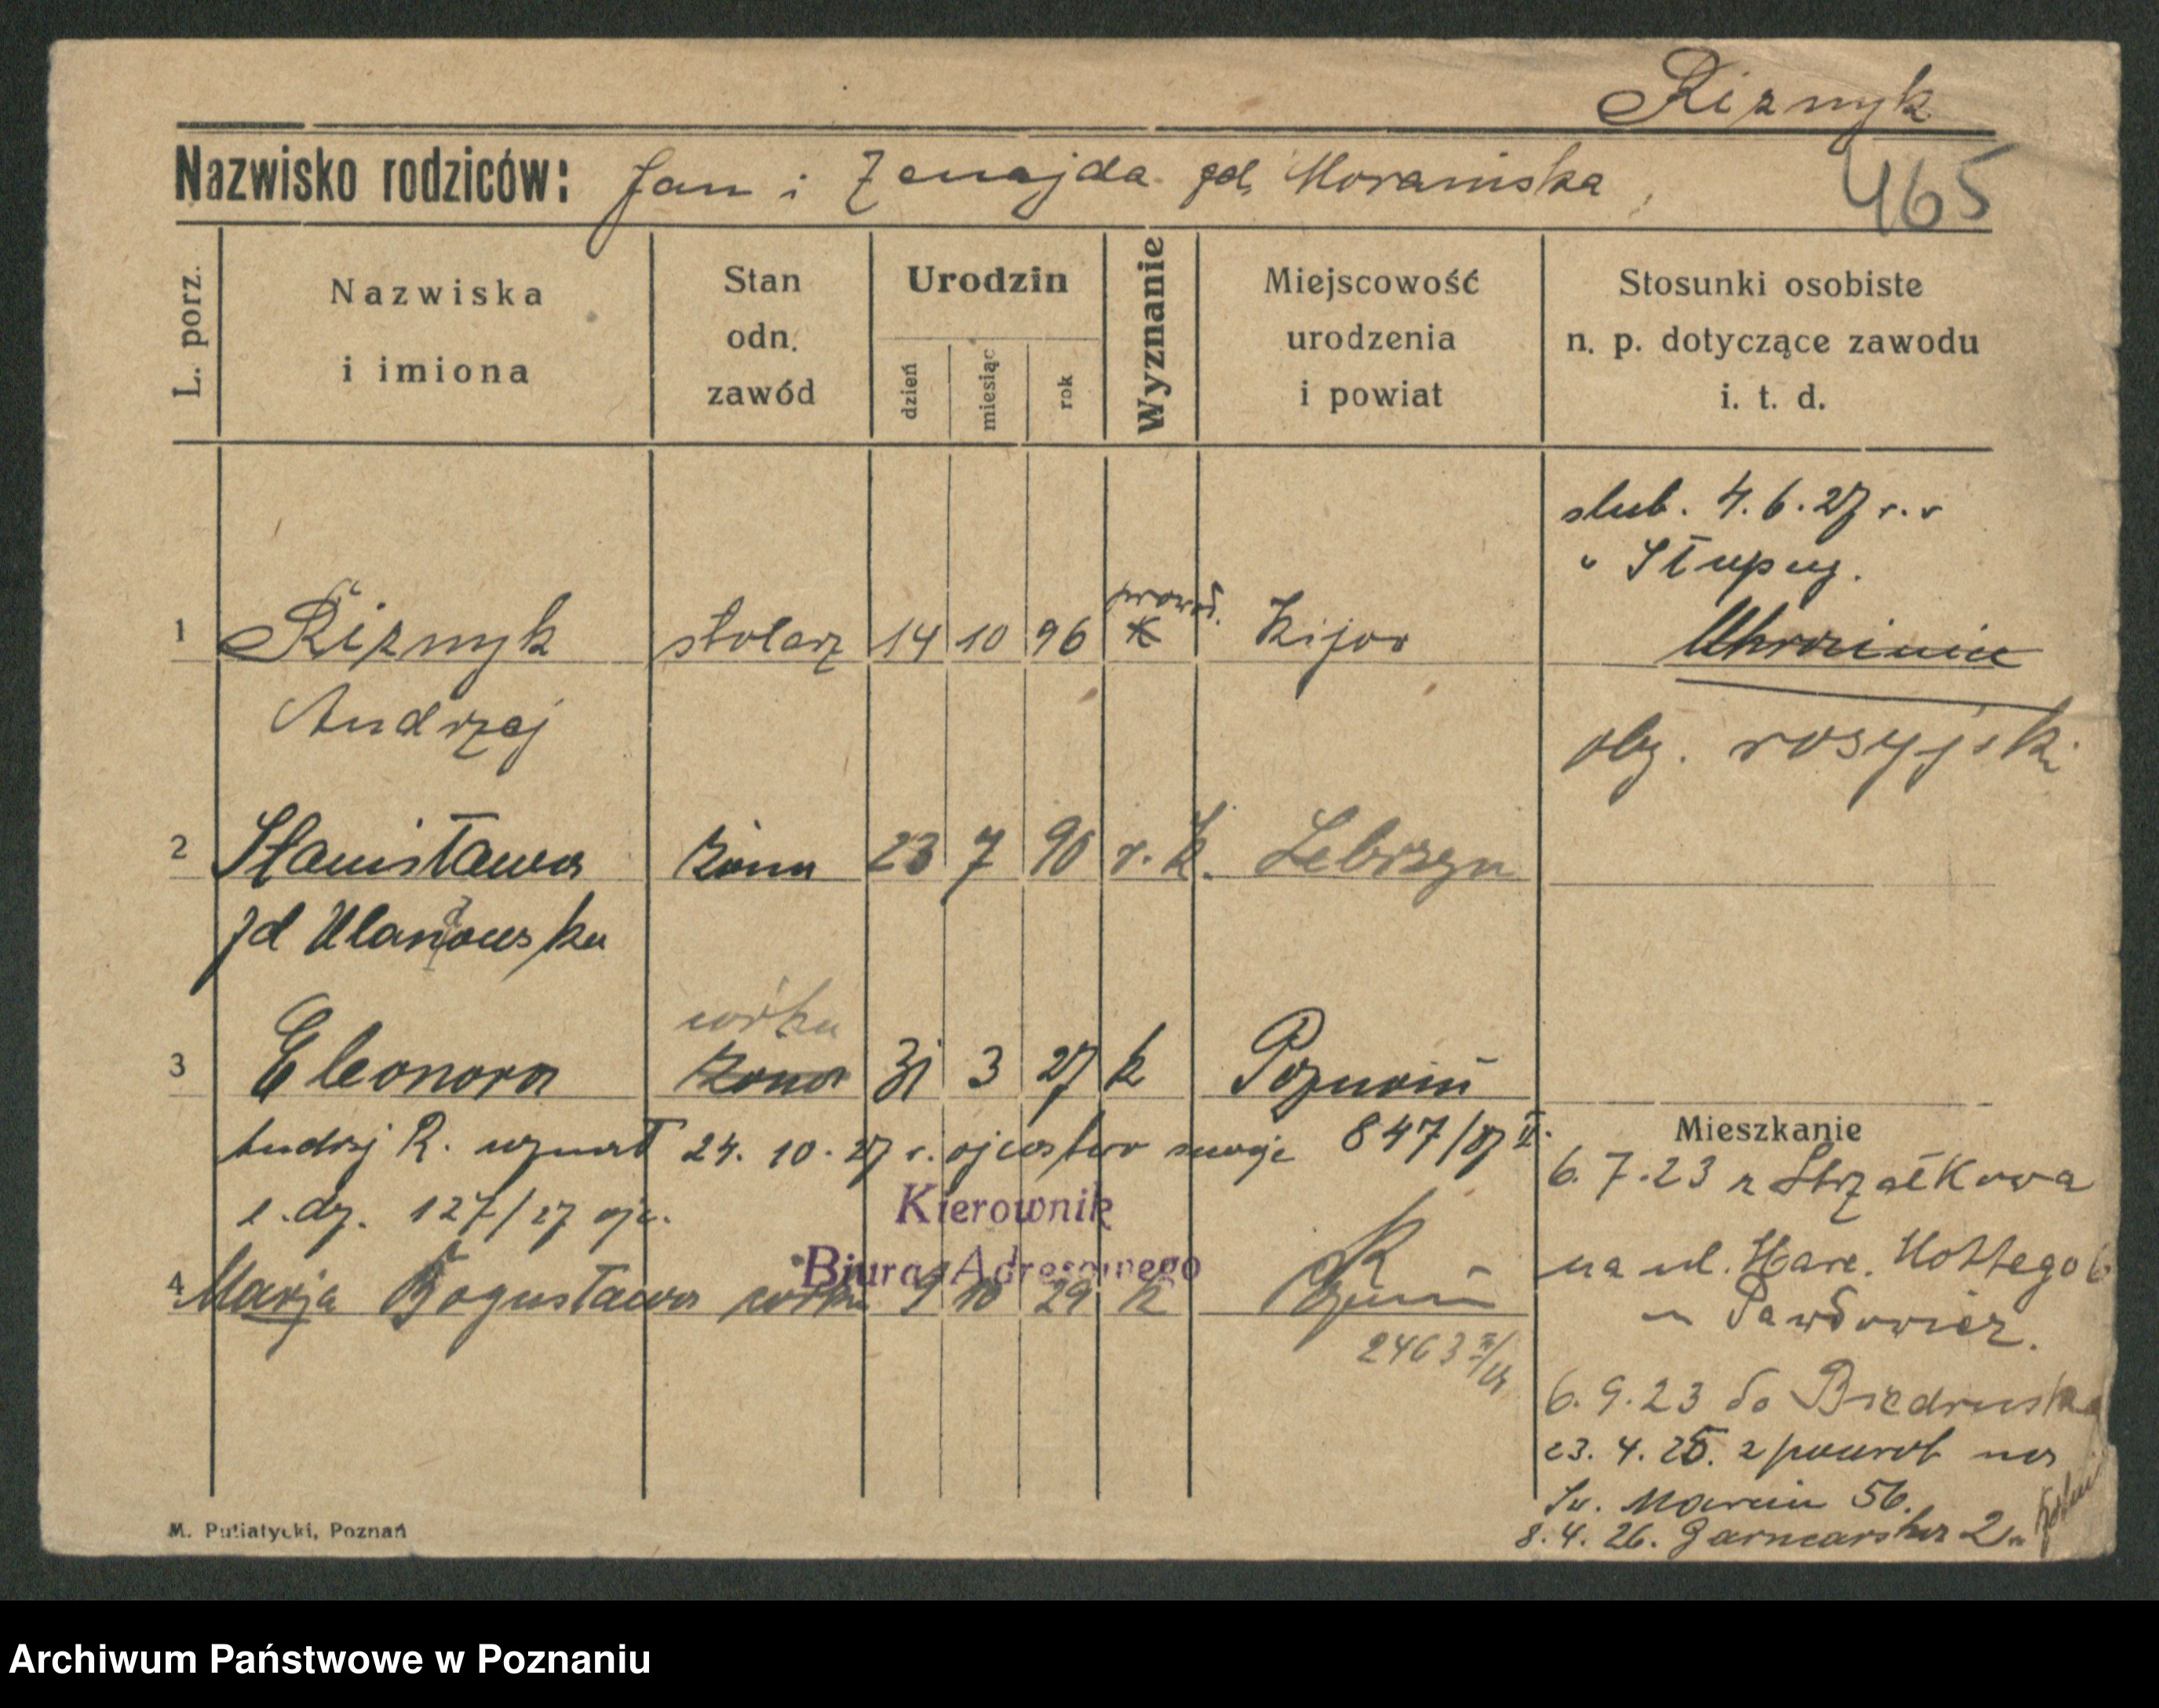 Riznyk
Nazwisko rodziców: Jan i Zenajda zd. Moraniska
465
L. porz.
Nazwiska
i imiona
Stan
odn.
zawód
Urodzin
dzień
miesiąc
rok
Wyznanie
Miejscowość
urodzenia
i powiat
Stosunki osobiste
n. p. dotyczące zawodu
i. t. d.
slub. 4.6.27 r. v
Słupcy.
1 Riznyk stolarz 14 10 96 prawosł. K Kijow
Andrzej
Ukrainiec
oby. rosyjski
2 Stanisława żona 23 7 90 r. k.
zd Ulanowska
córka
3 Eleonora żona 31 3 27 k Poznań
Andrzej R. uznał 24. 10. 27 r. ojcostwo swoje 847/27 II.
l. dz. 127/27 ojc.
Kierownik
Biura Adresowego
4 Marja Bogusława córka 9 10 29 k Poznań
2463
Mieszkanie
6. 7. 23 z Strzałkowa
na ul. Marc. Mottego 6
Pawłowicz.
6. 9. 23 do Biedruska
23. 4. 25. z powrot na
Św. Marcin 56.
8. 4. 26. Garncarska 2
M. Putiatycki, Poznań
Archiwum Państwowe w Poznaniu